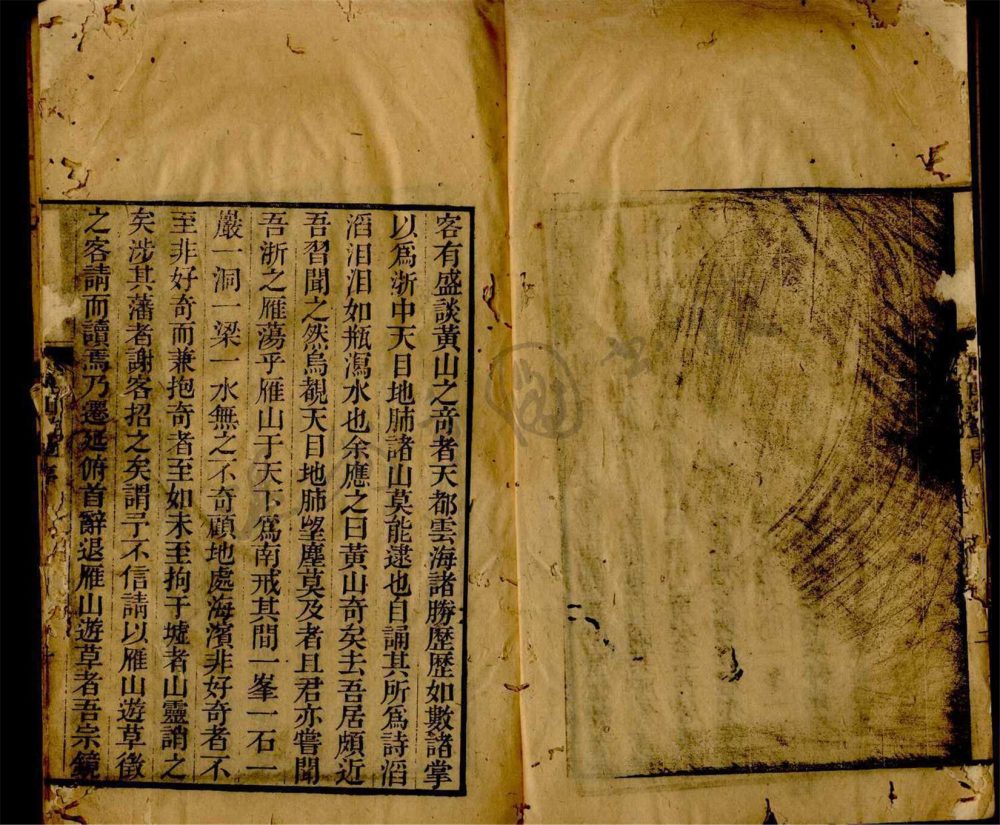 客有盛談黃山之奇者天都雲海諸勝歷歷如數諸掌
以爲浙中天目地肺諸山莫能逮也自誦其所爲詩滔
滔汩汩如瓶瀉水也余應之曰黃山奇矣去吾居頗近
吾習聞之然烏覩天目地肺望塵莫及者且君亦嘗聞
吾浙之雁蕩乎雁山于天下爲南戒其間一峯一石一
巖一洞一梁一水無之不奇顧地處海濱非好奇者不
至非好奇而兼抱奇者至如未至拘于墟者山靈誚之
矣涉其藩者謝客招之矣謂予不信請以雁山遊草徵
之客請而讀焉乃遷延俯首辭退雁山遊草者吾宗鏡